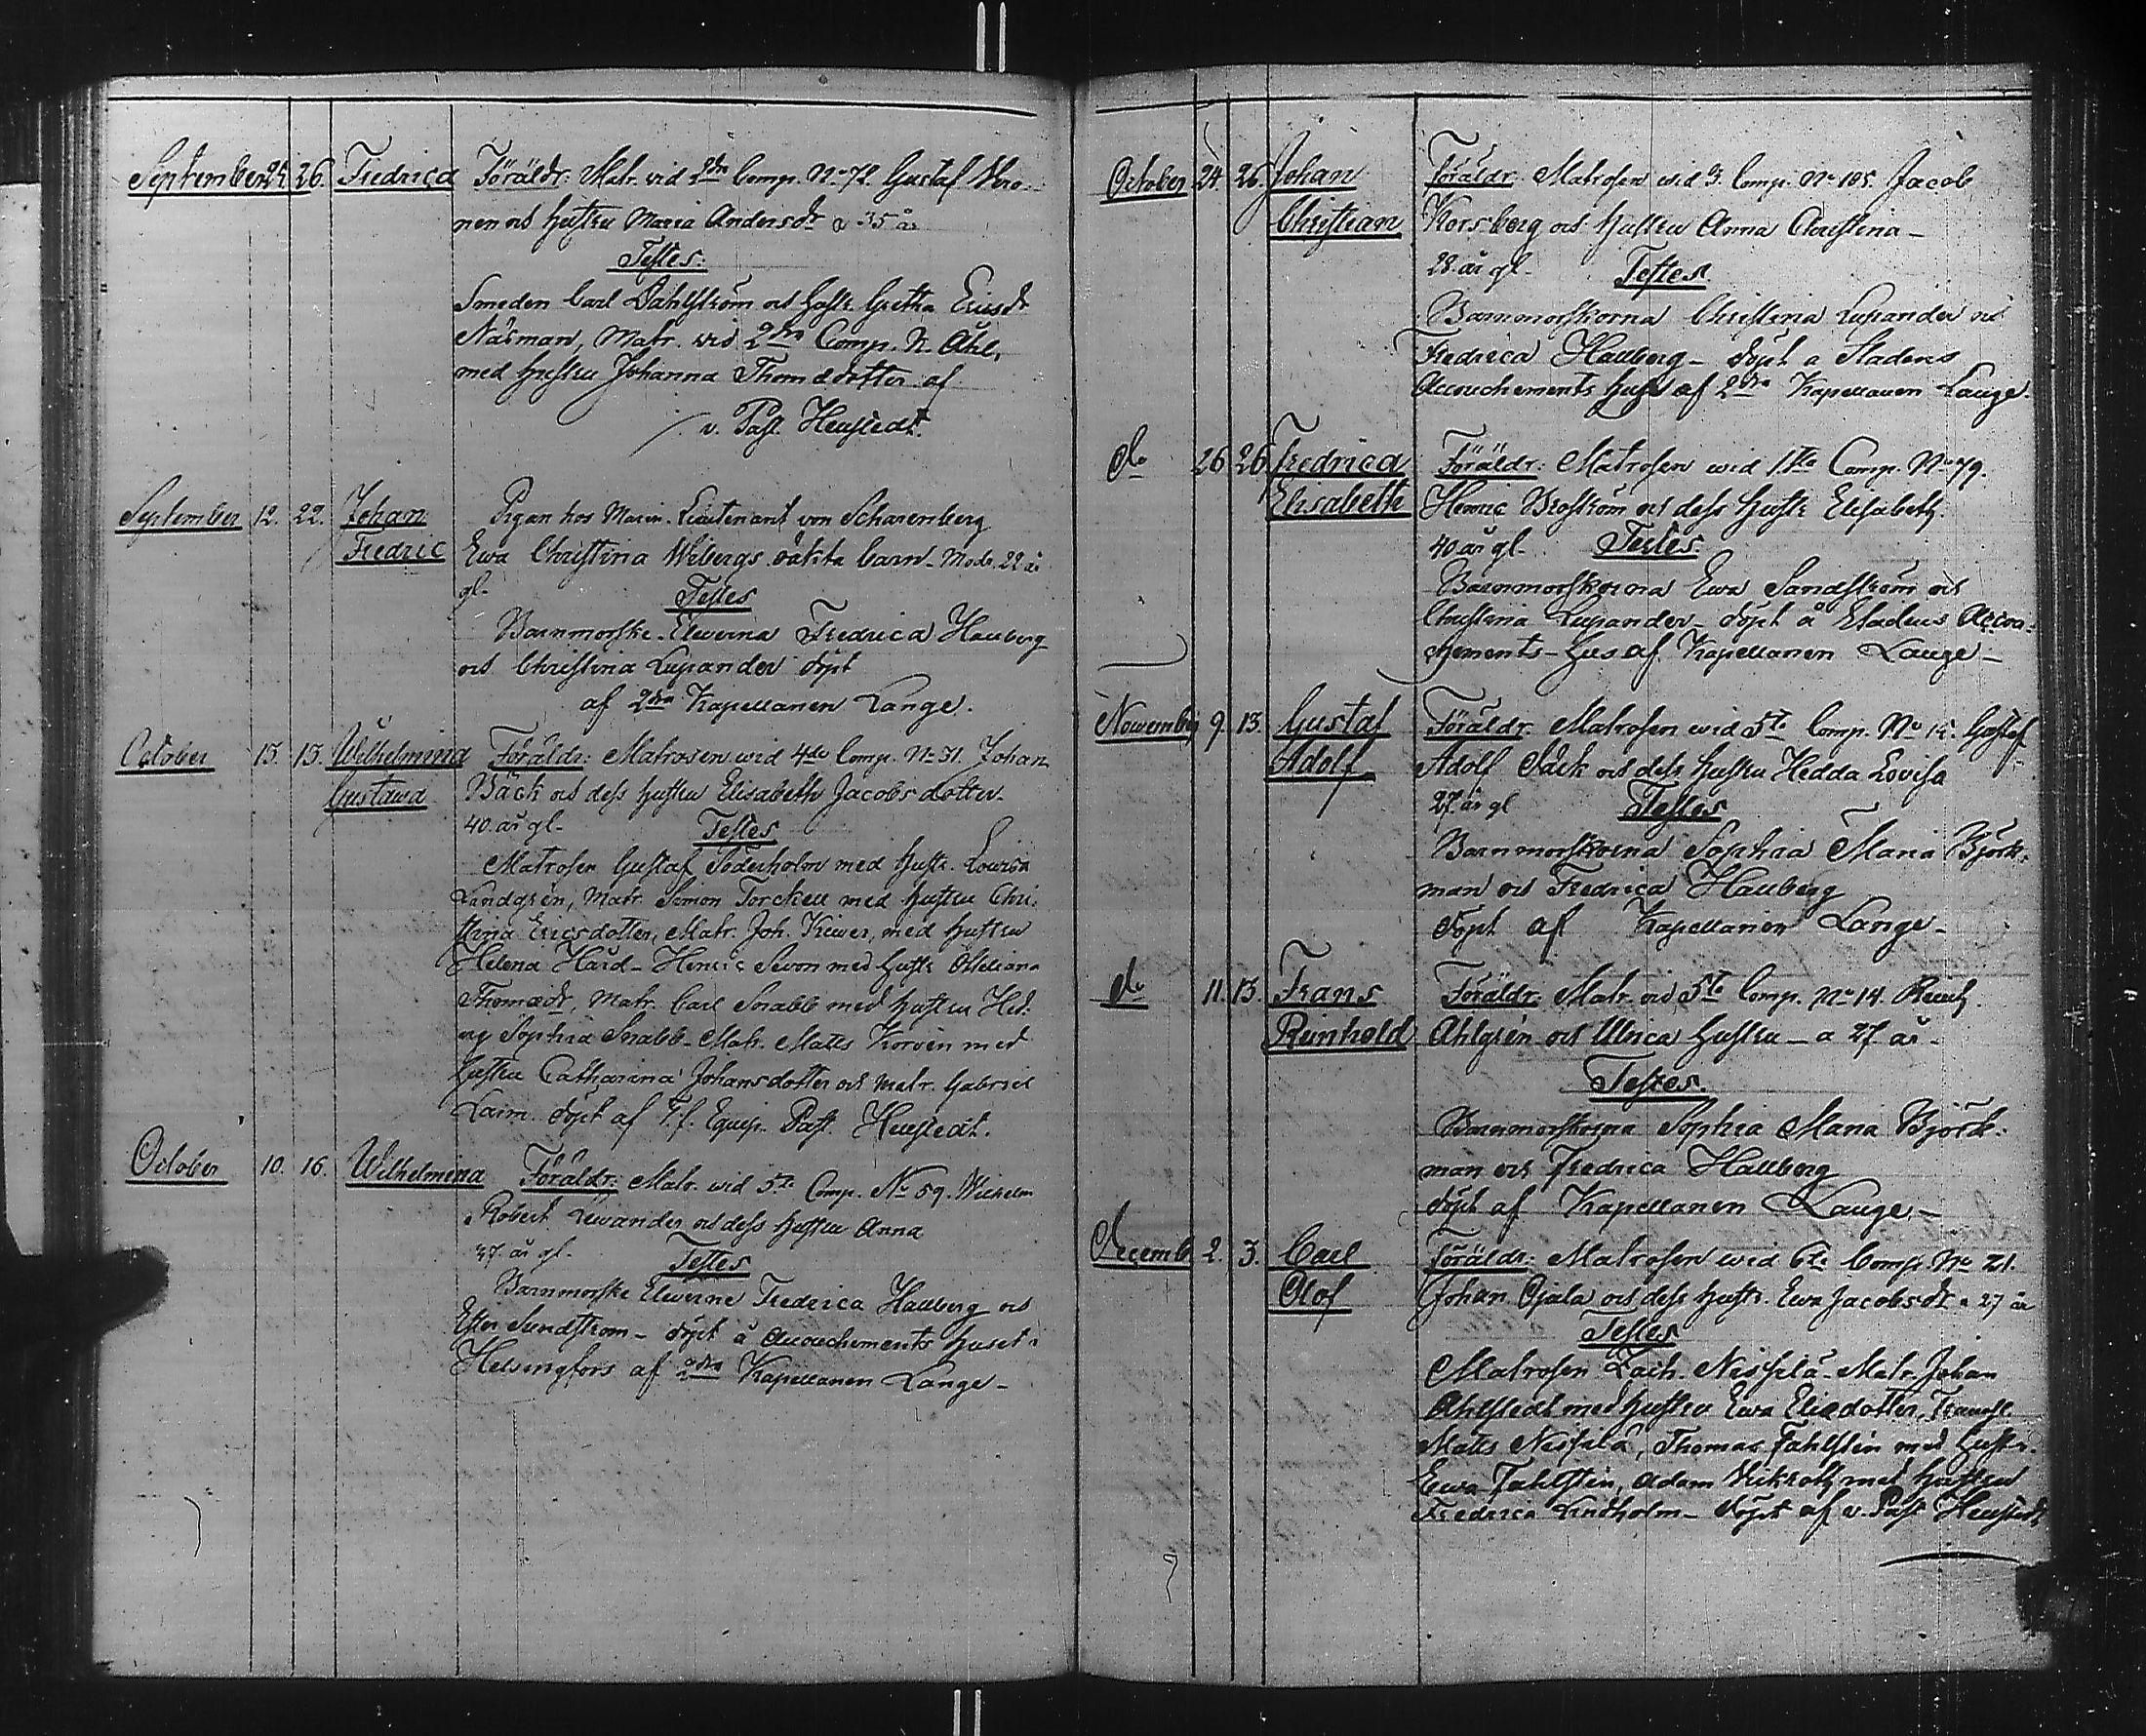 September 24. 26. Fredrica Föräldr: Matr. vid 2dra Comp. No 72. Gustaf Wro-
nen och hustru Maria Andersdr a 35 år
Testes:
Smeden Carl Dahlström och hustr. Gretha Ericsdr
Näsman, Matr. wid 2dra Comp. N. Åhl,
med hustru Johanna Thomædotter af
v. Past. Heustedt.
September 12. 22. Johan Pigan hos Marin-Lieutenant von Scharenberg
Fredric Ewa Christina Wibergs oäkta barn – Modr. 22 år
gl. Testes
Barnmorske-Elewerna Fredrica Hallberg
och Christina Lupander döpt
af 2dra Kapellanen Lange.
October 13. 13. Wilhelmina Föräldr: Matrosen wid 4de Comp. No 31. Johan
Gustava Bäck och dess hustru Elisabeth Jacobsdotter
40 år gl. Testes
Matrosen Gustaf Söderholm med hustr. Lovisa
Landgrén, Matr. Simon Torckell med hustru Chri-
stina Ericsdotter, Matr. Joh. Kiwer, med hustru
Helena Hård – Henric Sevon med hustr.
Thomædr, Matr. Carl Snabb med hustru Hed-
wig Sophia Snabb – Matr. Matts Korvén med
hustru Catharina Johansdotter och Matr. Gabriel
Laim. döpt af T.f. Equip. Past. Heustedt.
October 10. 16. Wilhelmina Föräldr: Matr. wid 5te Comp. No 59. Wilhelm
Robert Lewander och dess hustru Anna
37 år gl. Testes
Barnmorske Elewerne Fredrica Hallberg och
Ester Sundström – döpt å Accouchements huset i
Helsingfors af 2dra Kapellanen Lange –
October 24. 26. Johan Föräldr: Matrosen wid 3. Comp. No 105. Jacob
Christian Korsberg och hustru Anna Christina –
28 år gl. Testes
Barnmorskorna Christina Lupander och
Fredrica Hallberg – döpt å Stadens
Accouchements hus af 2dra Kapellanen Lange.
do 26 26 Fredrica Föräldr: Matrosen wid 1sta Comp. No 79.
Elisabeth Henric Broström och dess hustr. Elisabeth
40 år gl. Testes
Barnmorskorna Ewa Sandström och
Christina Lupander – döpt å Stadens Accou-
chements-hus af Kapellanen Lange –
Nowember 9. 13. Gustaf Föräldr: Matrosen wid 5te Comp. No 15. Gustaf
Adolf Adolf Säck och dess hustru Hedda Lovisa
27 år gl Testes
Barnmorskorna Sophia Maria Björk-
man och Fredrica Hallberg
döpt af Kapellanen Lange –
do 11. 13. Frans Föräldr: Matr. vid 5te Comp. No 14. Reinh.
Reinhold Ahlgrén och Ulrica hustru – a 27 år –
Testes.
Barnmorskorna Sophia Maria Björk-
man och Fredrica Hallberg
döpt af Kapellanen Lange –
Decemb 2. 3. Carl Föräldr: Matrosen wid 6te Comp. No 21.
Olof Johan Ojala och dess hustr. Ewa Jacobsdr a 27 år
Testes
Matrosen Zach. Nissilä – Matr. Johan
Ahlstedt med hustru Ewa Eliædotter,
Matts Nissilä, Thomas Fahlstén med hustr.
Ewa Fahlstén, Adam med hustru
Fredrica Lindholm – döpt af v. Past Heustedt